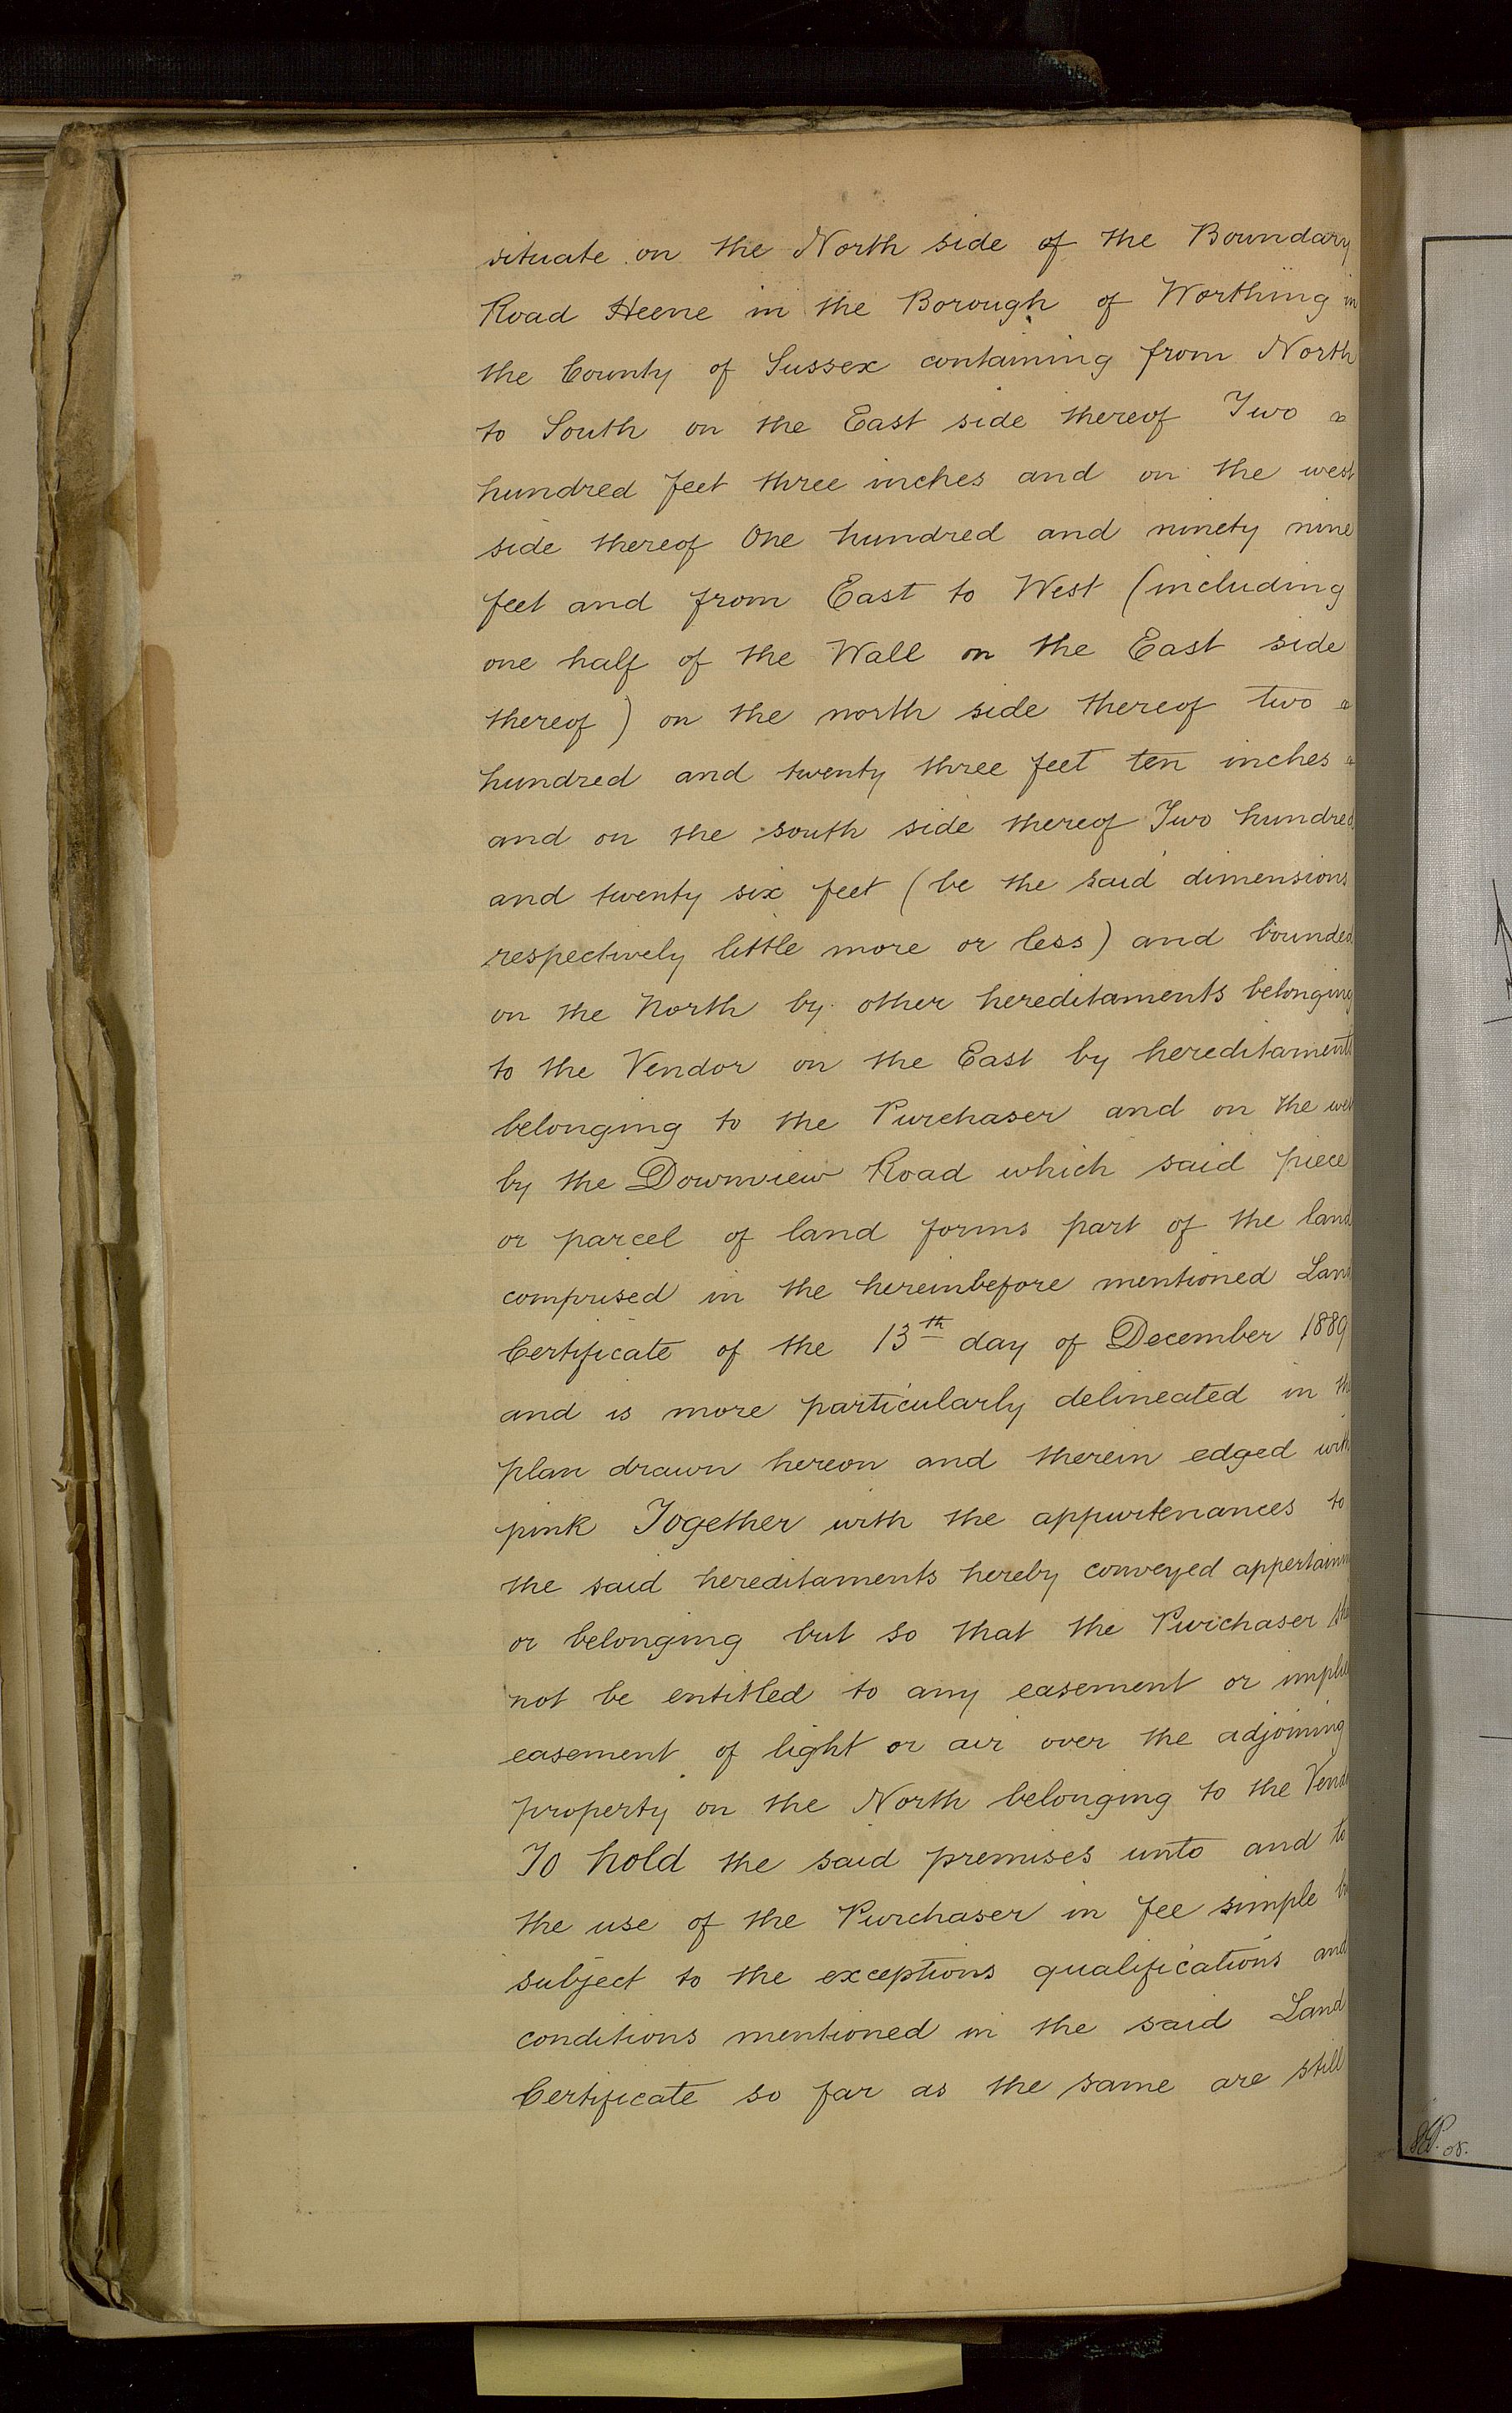 situate on the North side of the Boundary
Road Heene in the Borough of Worthing in
the County of Sussex containing from North
to South on the East side thereof Two
hundred feet three inches and on the west
side thereof One hundred and ninety nine
feet and from East to West (including
one half of the Wall on the East side
thereof) on the north side thereof two
hundred and twenty three feet ten inches
and on the south side thereof Two hundred
and twenty six feet (be the said dimensions
respectively little more or less) and bounded
on the North by other hereditaments belonging
to the Vendor on the East by hereditaments
belonging to the Purchaser and on the wes
by the Downview Road which said piece
or parcel of land forms part of the land
comprised in the hereinbefore mentioned Land
Certificate of the 13th day of December 1889
and is more particularly delineated in the
plan drawn hereon and therein edged with
pink Together with the appurtenances to
the said hereditaments hereby conveyed appertainin
or belonging but so that the Purchaser sha
not be entitled to any easement or implie
easement of light or air over the adjoining
property on the North belonging to the Vend
To hold the said premises unto and to
the use of the Purchaser in fee simple
subject to the exceptions qualifications and
conditions mentioned in the said Land
Certificate so far as the same are still